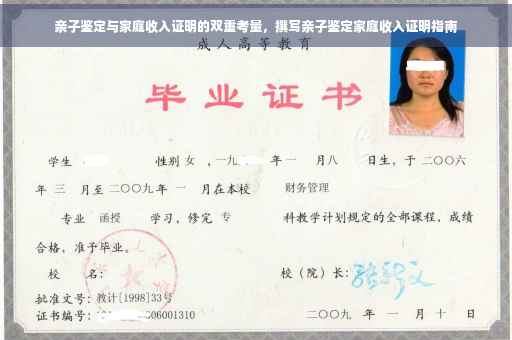 亲子鉴定与家庭收入证明的双重考量，撰写亲子鉴定家庭收入证明指南
成人高等教育
毕业证书
学生 性别 女 ，一九 年 一 月八 日生，于二〇〇六
年 三 月至二〇〇九年 一 月在本校 财务管理
专业 函授 学习，修完 专 科教学计划规定的全部课程，成绩
合格，准予毕业。
校 名： 校（院）长：
批准文号：教计[1998]33号
证书编号： 06001310 二〇〇九 年 一 月 十 日